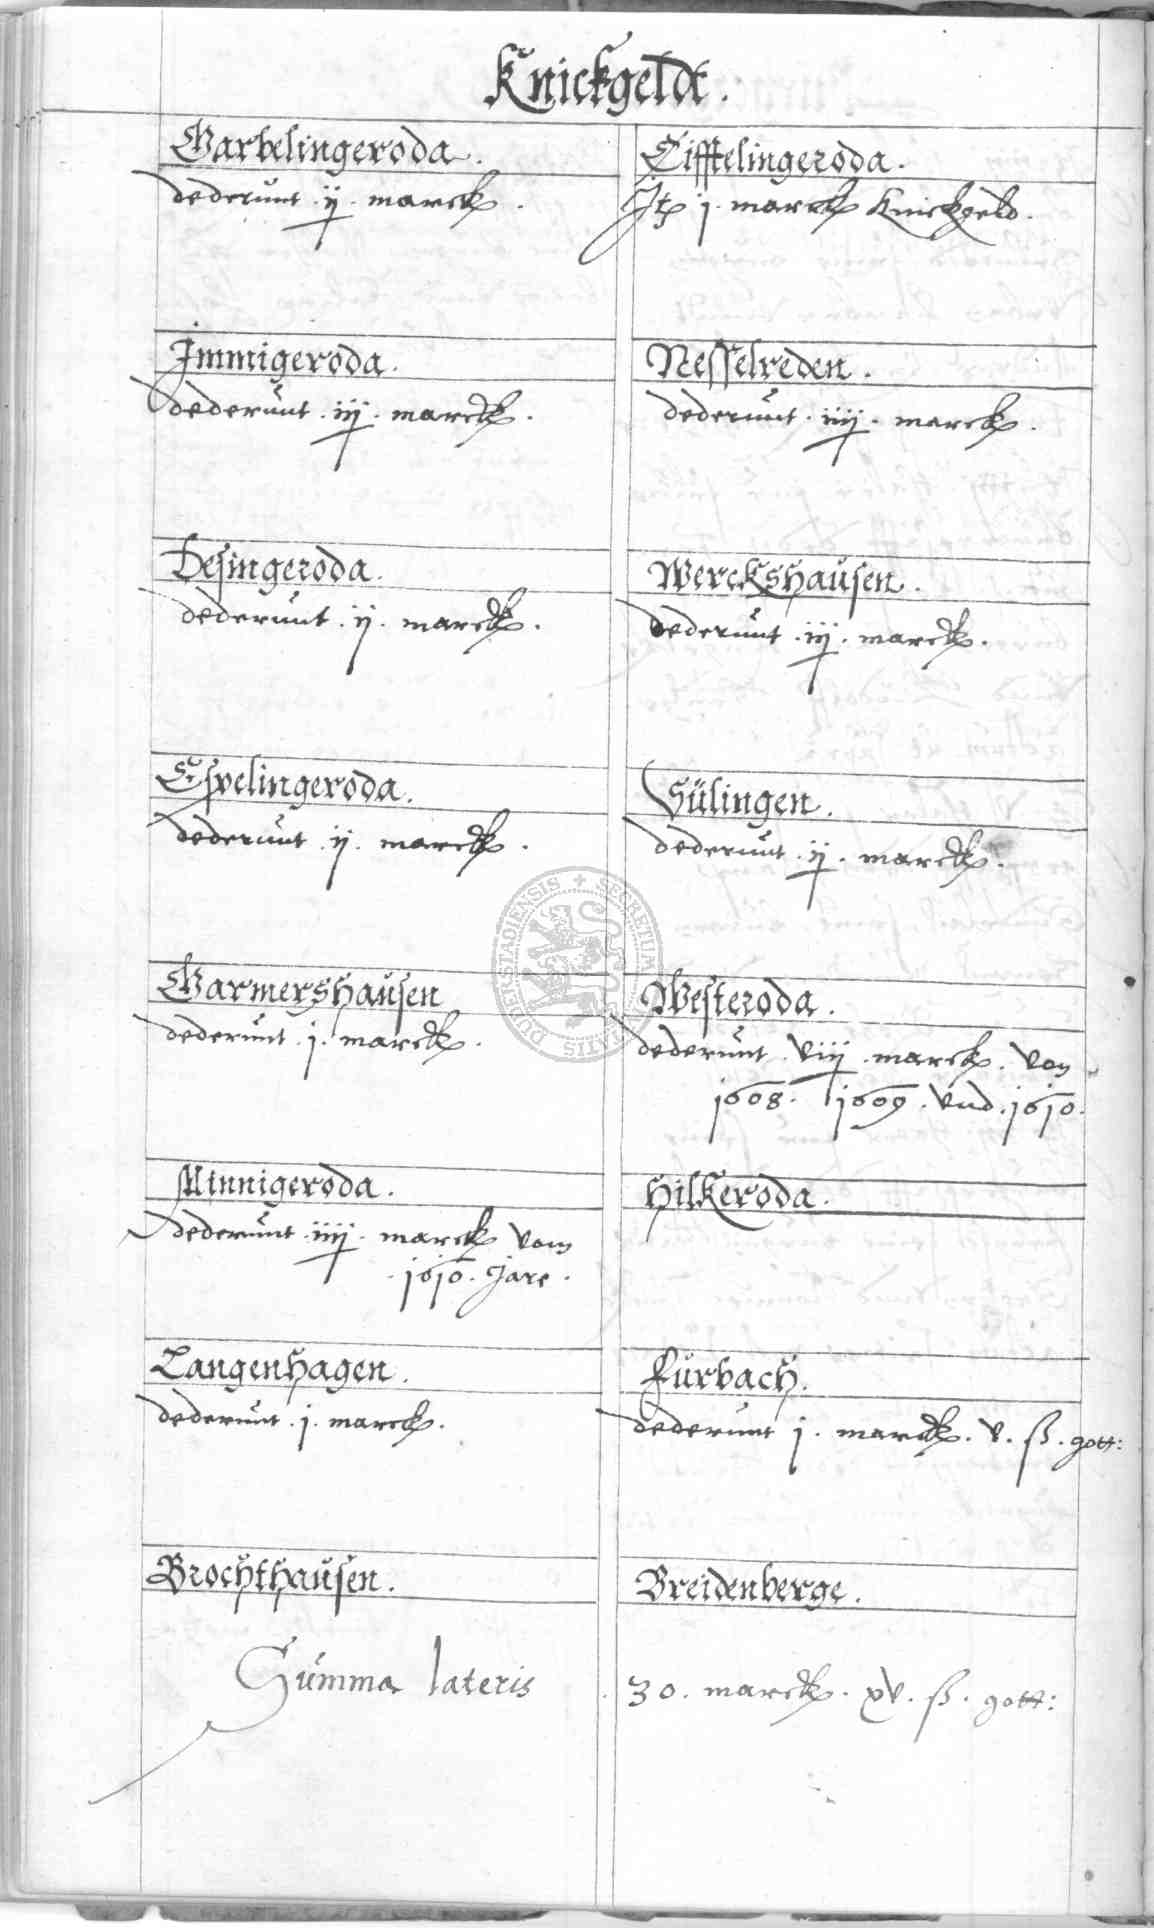 Knickgeldt.
Garbelingeroda.
dederunt . ij . marck .
Tifftelingeroda.
Jt j . marck Knickgeld .
Immigeroda.
dederunt . iij . marck .
Nesselreden .
dederunt . iiij . marck .
Desingeroda.
dederunt . ij . marck .
Werckshausen .
dederunt . iij . marck .
Espelingeroda .
dederunt . ij . marck .
Sülingen .
dederunt . ij . marck .
Garmershausen
dederunt . j . marck .
Westeroda .
dederunt . viij . marck . von
1608 . 1609 . vnd . 1610 .
Minnigeroda .
dederunt . iiij . marck vom
. 1610 . Jare .
Hilkeroda .
Langenhagen .
dederunt . j . marck .
Furbach .
dederunt j . marck . v . ß . gott:
Brochthausen .
Breidenberge .
Summa lateris 30 . marck . xv . ß . gott:
SECRETUM CIVITATIS DUDERSTADIENSIS